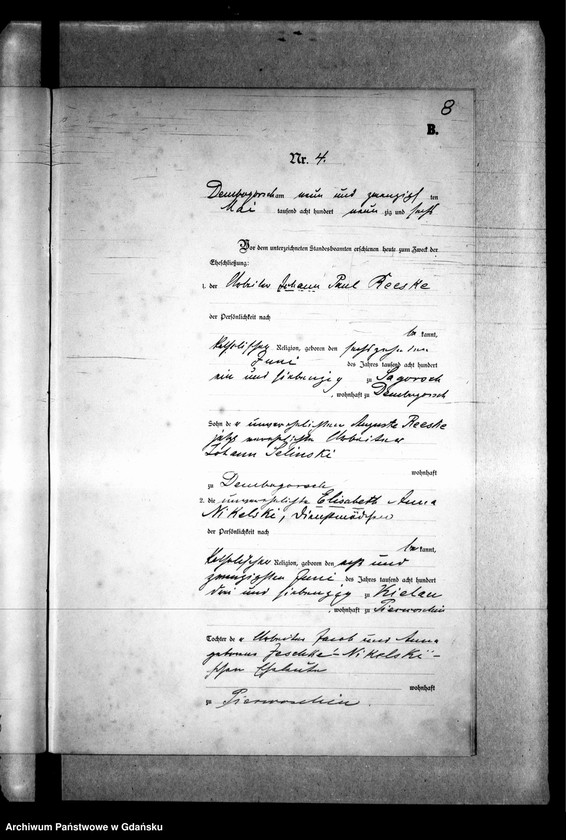 8
B.
Nr. 4.
Dembogorsch am neun und zwanzigsten
Mai tausend acht hundert neunzig und sechs
Vor dem unterzeichneten Standesbeamten erschienen heute zum Zweck der
Eheschließung:
1. der Arbeiter Johann Paul Reeske
der Persönlichkeit nach
be kannt,
katholischer Religion, geboren den sechszehnten
Juni des Jahres tausend acht hundert
ein und siebenzig zu Sagorsch
, wohnhaft zu Dembogorsch
Sohn der unverehelichten Auguste Reeske
jetzt verehelichte Arbeiter
Johann Selinski
wohnhaft
zu Dembogorsch
2. die unverehelichte Elisabeth Anna
Nikelski, Dienstmädchen
der Persönlichkeit nach
be kannt,
katholischer Religion, geboren den acht und
zwanzigsten Juni des Jahres tausend acht hundert
drei und siebenzig zu Kielau
, wohnhaft zu Pierwoschin
Tochter der Arbeiter Jacob und Anna
geborene Jeschke-Nikelski-
schen Eheleute
wohnhaft
zu Pierwoschin.
Archiwum Państwowe w Gdańsku